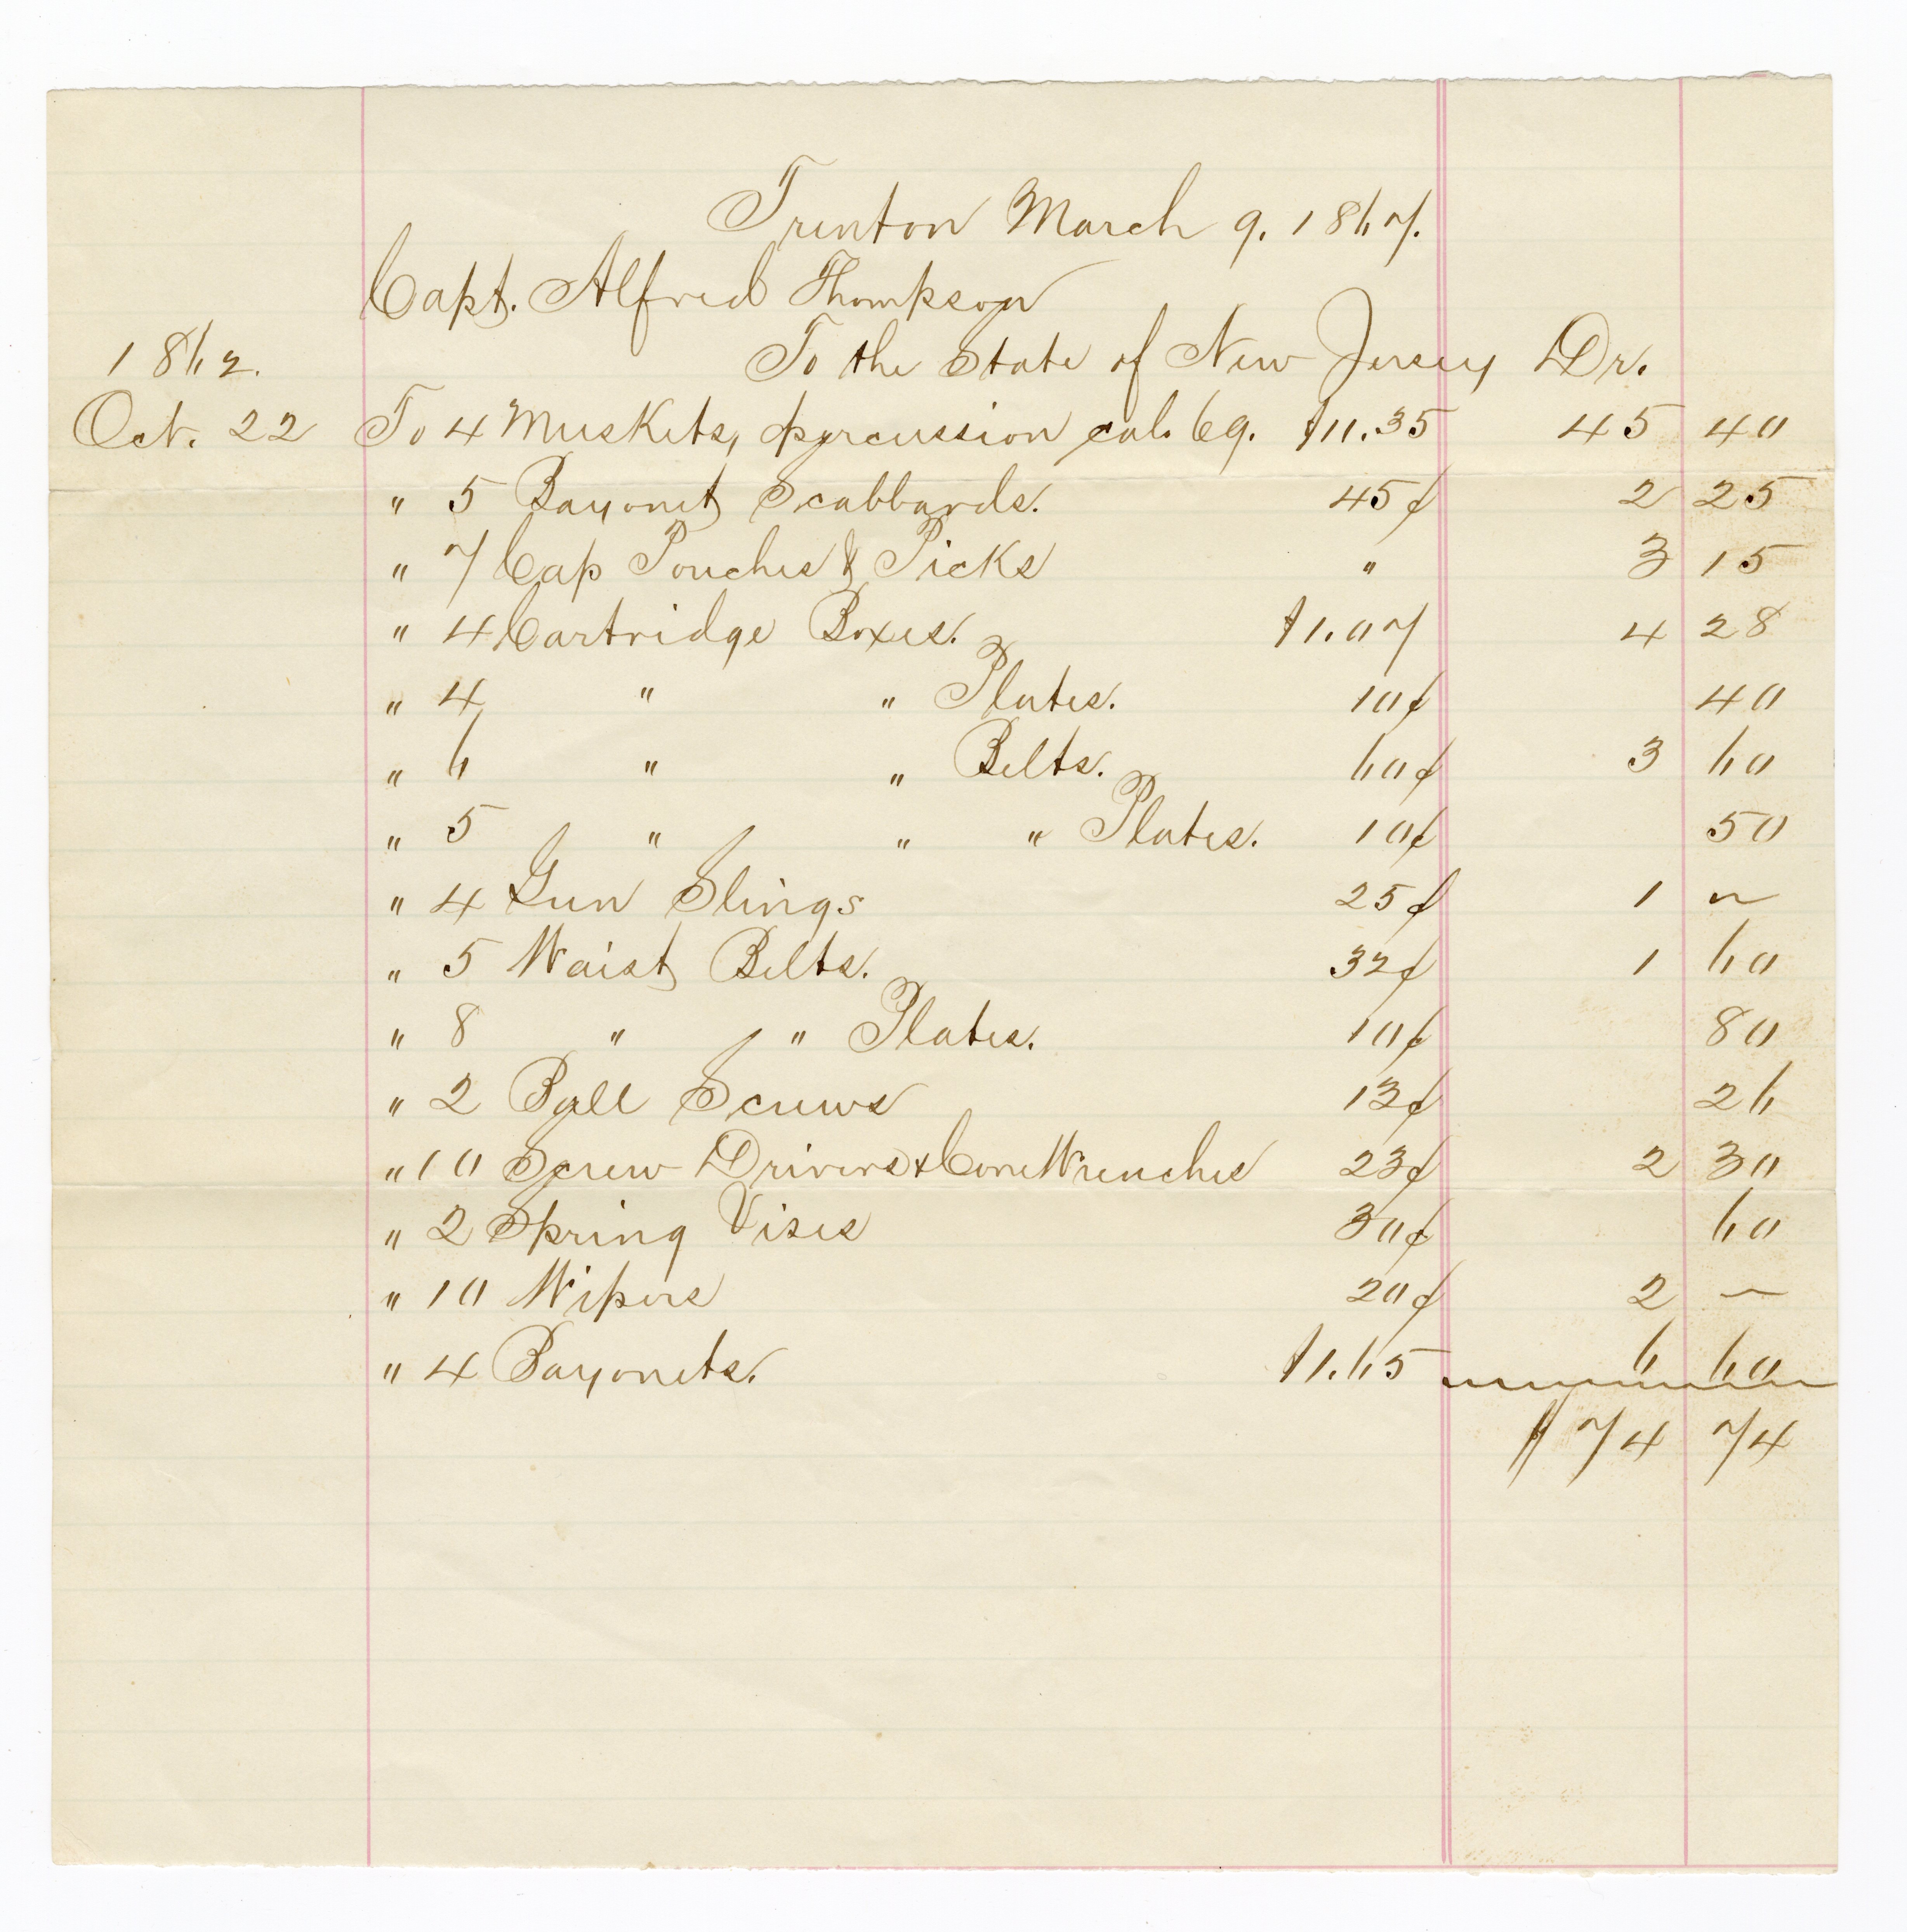 Trenton March 9. 1867.
Capt. Alfred Thompson
1862. To the State of New Jersey Dr.
Oct. 22 To 4 Muskets, percussion cal. 69. $11.35 45 40
" 5 Bayonet Scabbards. 45¢ 2 25
" 7 Cap Pouches & Picks " 3 15
" 4 Cartridge Boxes. $1.07 4 28
" 4 " " Plates. 10¢ 40
" 6 " " Belts. 60¢ 3 60
" 5 " " " Plates. 10¢ 50
" 4 Gun Slings 25¢ 1 ~
" 5 Waist Belts. 32¢ 1 60
" 8 " " Plates. 10¢ 80
" 2 Ball Screws 13¢ 26
" 10 Screw Drivers & Cone Wrenches 23¢ 2 30
" 2 Spring Vises 30¢ 60
" 10 Wipers 20¢ 2 ~
" 4 Bayonets. $1.65 6 60
$ 74 74